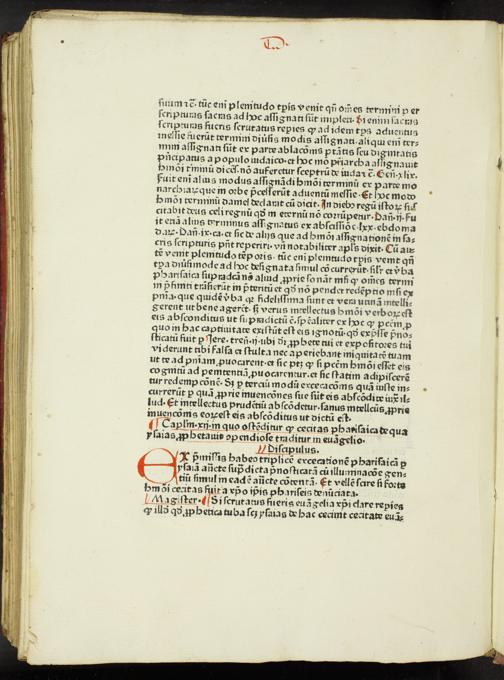 suum ⁊c̄. tūc eni plenitudo tp̄is venit qn̄ om̄es termini ꝑ er
scripturas sacras ad hoc assignati sūt impleti. Si enim sacras
scripturas fueris scrutatus repies ꝙ ad idem tp̄s aduentus
messie fuerūt termini diuisis modis assignati. aliqui eni ter
mini assignati sūt ex parte ablacōnis ptātis seu dignitatis
pͥncipatus a populo iudaico. et hoc mō pr̄iarcha assignauit
hm̄oi tͥminū dicēs. nō auferetur sceptrū de iuda ⁊c̄. Gen. xlix.
Fuit eni alius modus assignādi hm̄oi terminū ex parte mo
narchiarꝫ que in orbe p̄cesserūt aduentū messie. Et hoc modo
hm̄oi terminū daniel declarat cū dicit. In diebꝰ regū istoꝝ sus
citabit deus celi regnū qd̄ in eternū nō corrūpetur. Dan̄. ij. Fu
it etiā alius terminus assignatus ex abscissiōe .lxx. ebdoma
daꝝ. Dan̄. ix. ca. et sic de aliis que ad hm̄oi assignationē in sa
cris scripturis pn̄t reperiri. vn̄ notabiliter apl̄s dixit. Cū au
tē venit plenitudo tēporis. tūc eni plenitudo tp̄is venit qn̄
tp̄a diūsimode ad hoc designata simul cōcurrerūt. sil̄r et v̄ba
pharisaica supradcā nō aliud ꝓprie sonāt nisi ꝙ om̄es termi
ni p̄finiti trāsierūt in p̄teritū et qd̄ nō pendet redēptio nisi ex
pn̄ia. que quidē v̄ba ꝙ fidelissima sunt et vera vtinā intelli
gerent ut bene agerēt. sꝫ verus intellectus hm̄oi verboꝝ est
eis absconditus ut supradictū ē. sp̄ealiter ex hoc ꝙ pctm̄ ꝓ
quo in hac captiuitate existūt est eis ignotū. qd̄ exp̄sse p̄no
sticatū fuit ꝑ Jere. tren. ij. ubi dr̄. ꝓphete tui et expositores tui
viderunt tibi falsa et stulta. nec aperiebant iniquitatē tuam
ut te ad pn̄iam ꝓuocarent. et sic ptꝫ ꝙ si pctm̄ hm̄oi esset eis
cognitū ad penitentiā ꝓuocarentur. et sic statim adipiscerē
tur redempcōnē. Sꝫ ꝑ terciū modū excecacōnis quā iuste in
currerūt ꝑ quā ꝓprie inuencōnes sue sūt eis abscōdite iuxͣ il-
lud. Et intellectus prudētiū abscōdetur. sanus intellcūs ꝓprie
inuencōnis eoꝝ est eis absconditus ut dictū est.
Caplm̄. xij. in quo ostēditur ꝙ cecitas pharisaica de qua
ysaias ꝓphetauit cōpendiose traditur in euāgelio.
Discipulus.
EX p̄missis habeo triplicē excecationē pharisaicā ꝑ
ysaiā aūcte supͣdicta p̄nosticatā cū illuminacōe gen-
tiū simul in eadē aūcte cōtentā. Et vellē scire si forte
hm̄oi cecitas fuit a xp̄o ip̄is phariseis denūciata.
Magister. Si scrutatus fueris euāgelia xp̄i clare repies
ꝙ illd̄ qd̄ ꝓphetica tuba scꝫ ysaias de hac cecinit cecitate euā-